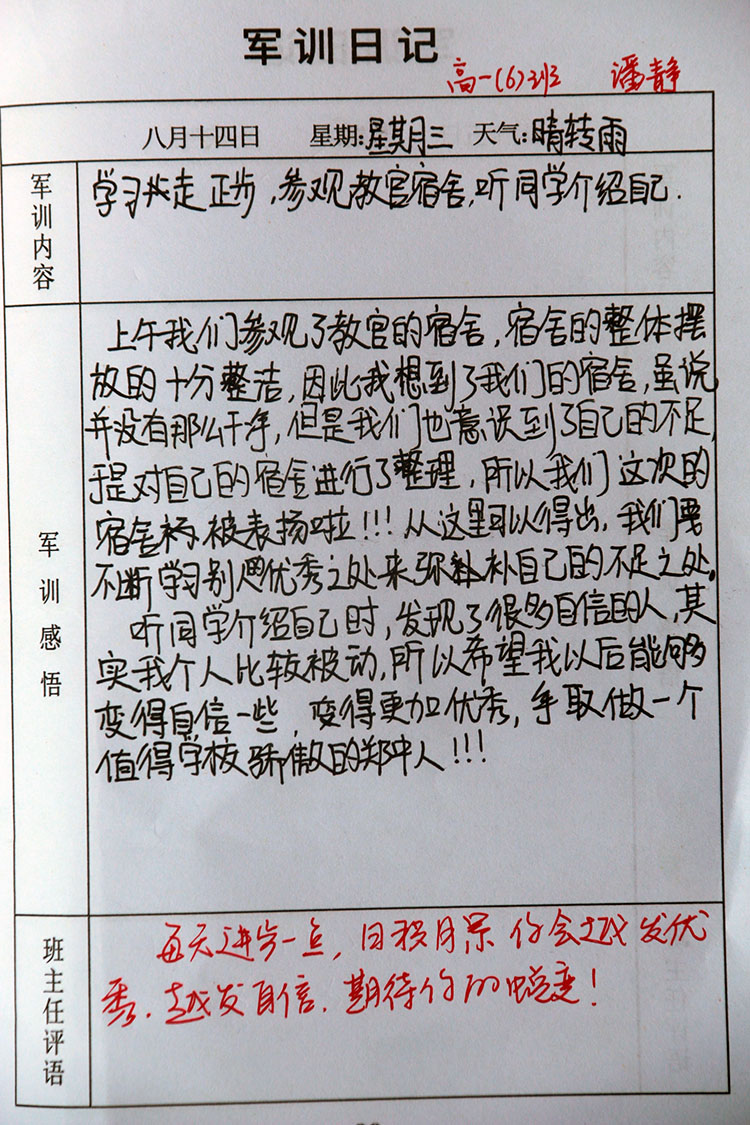 军训日记
高一(6)班 潘静
八月十四日 星期:星期三 天气:晴转雨
军训内容
学习走正步,参观教官宿舍,听同学介绍自己.
军训感悟
上午我们参观了教官的宿舍,宿舍的整体摆
放的十分整洁,因此我想到了我们的宿舍,虽说
并没有那么干净,但是我们也意识到了自己的不足,
于是对自己的宿舍进行了整理,所以我们这次的
宿舍被表扬啦!!!从这里可以得出,我们要
不断学习别人优秀之处来弥补自己的不足之处。
听同学介绍自己时,发现了很多自信的人,其
实我个人比较被动,所以希望我以后能够
变得自信一些,变得更加优秀,争取做一个
值得学校骄傲的郑中人!!!
班主任评语
每天进步一点,日积月累你会越发优
秀.越发自信.期待你的蜕变!